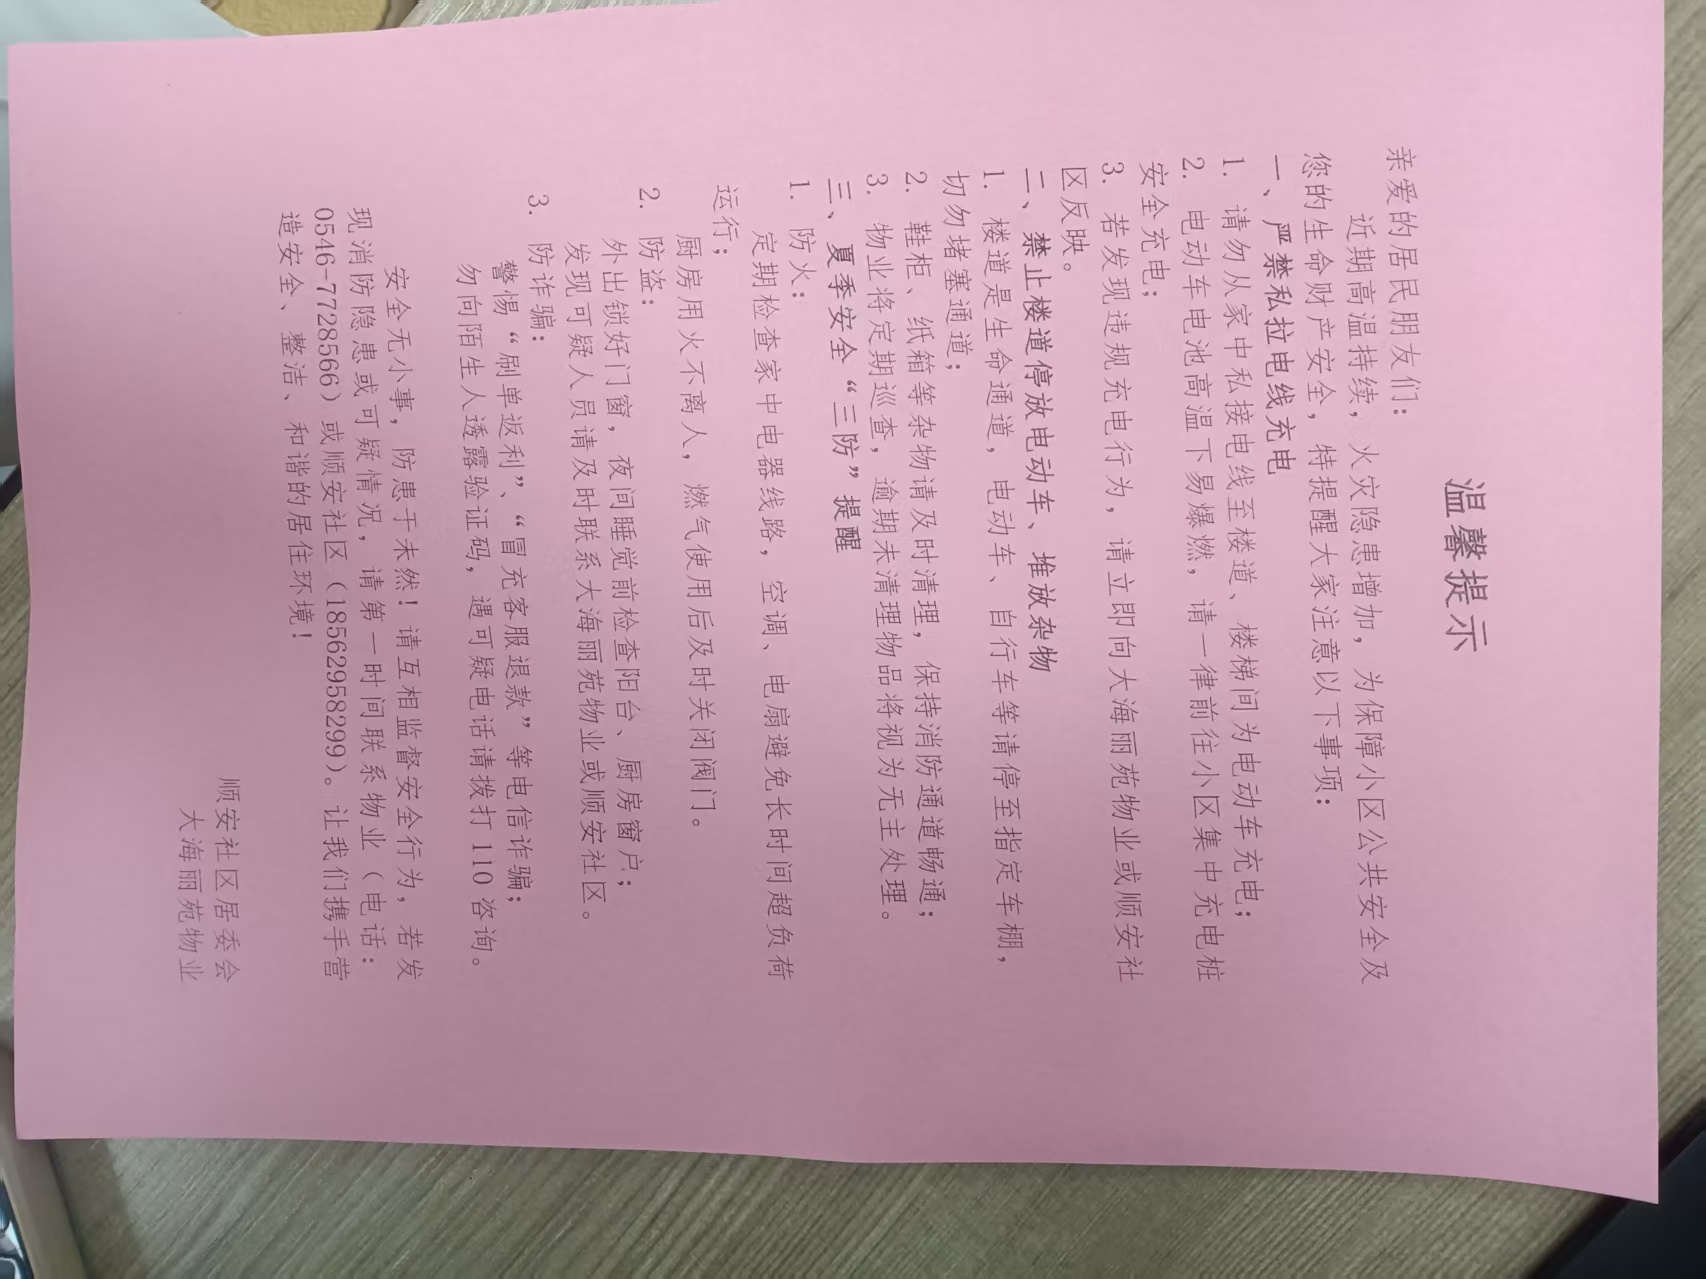 温馨提示
亲爱的居民朋友们：
近期高温持续，火灾隐患增加，为保障小区公共安全及
您的生命财产安全，特提醒大家注意以下事项：
一、严禁私拉电线充电
1. 请勿从家中私接电线至楼道、楼梯间为电动车充电；
2. 电动车电池高温下易爆燃，请一律前往小区集中充电桩
安全充电；
3. 若发现违规充电行为，请立即向大海丽苑物业或顺安社
区反映。
二、禁止楼道停放电动车、堆放杂物
1. 楼道是生命通道，电动车、自行车等请停至指定车棚，
切勿堵塞通道；
2. 鞋柜、纸箱等杂物请及时清理，保持消防通道畅通；
3. 物业将定期巡查，逾期未清理物品将视为无主处理。
三、夏季安全“三防”提醒
1. 防火：
定期检查家中电器线路，空调、电扇避免长时间超负荷
运行；
厨房用火不离人，燃气使用后及时关闭阀门。
2. 防盗：
外出锁好门窗，夜间睡觉前检查阳台、厨房窗户；
发现可疑人员请及时联系大海丽苑物业或顺安社区。
3. 防诈骗：
警惕“刷单返利”、“冒充客服退款”等电信诈骗；
勿向陌生人透露验证码，遇可疑电话请拨打 110 咨询。
安全无小事，防患于未然！请互相监督安全行为，若发
现消防隐患或可疑情况，请第一时间联系物业（电话：
0546-7728566）或顺安社区（18562958299）。让我们携手营
造安全、整洁、和谐的居住环境！
顺安社区居委会
大海丽苑物业